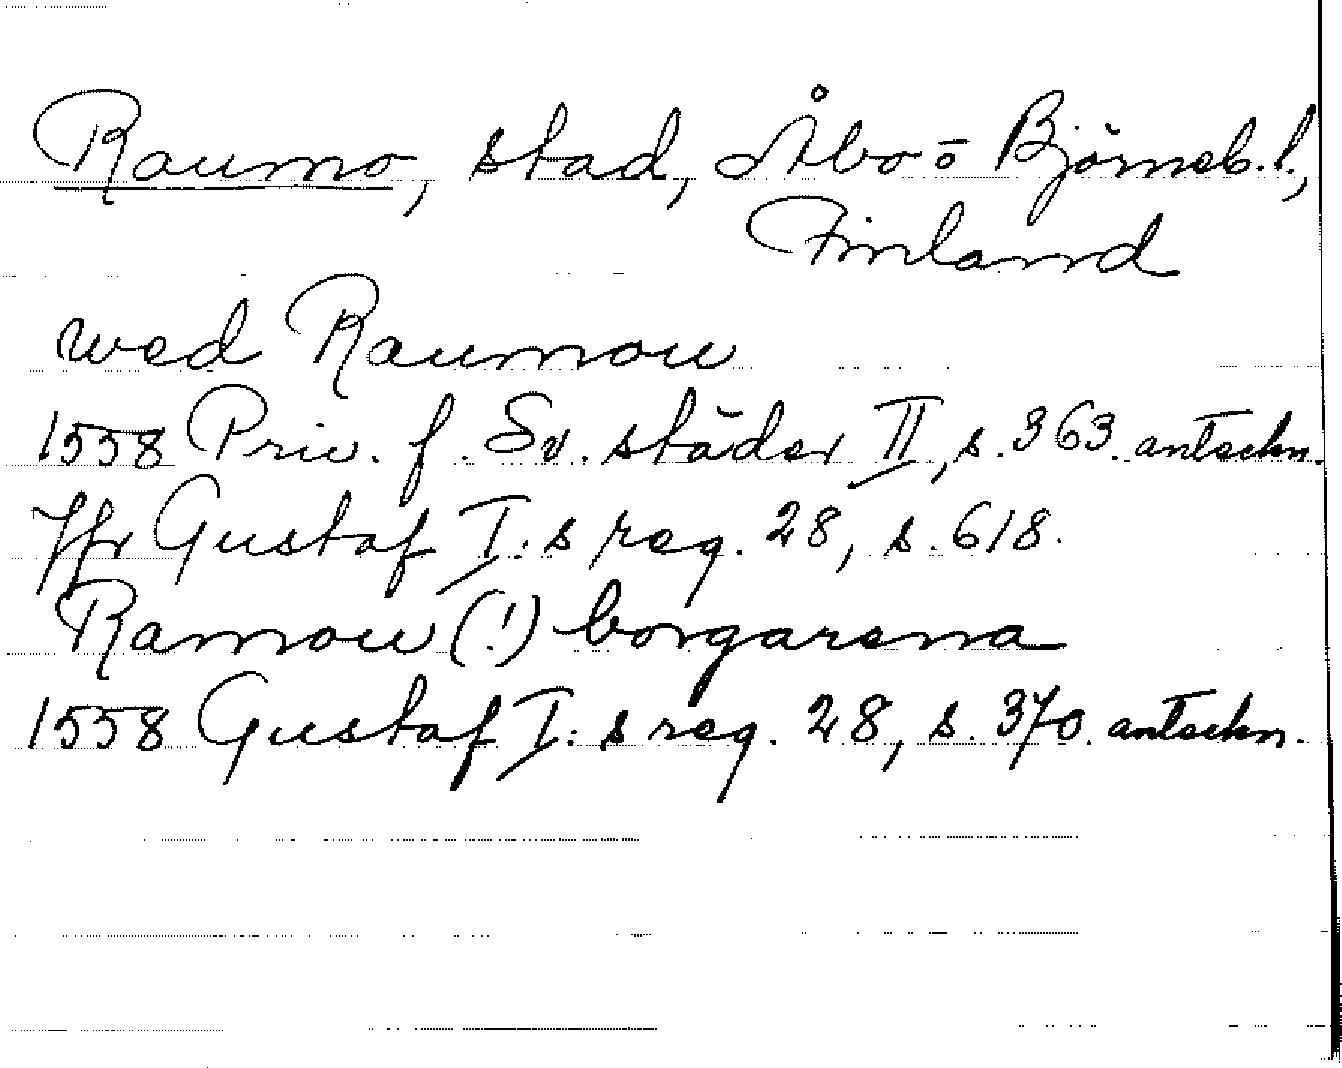 Raumo, stad, Åbo o Björneb. l.,
Finland
wed Raumou
1558 Priv. f. Sv. städer II, s. 363. anteckn.
Jfr Gustaf I:s reg. 28, s. 618.
Ramou (!) borgarena
1558 Gustaf I:s reg. 28, s. 370. anteckn.